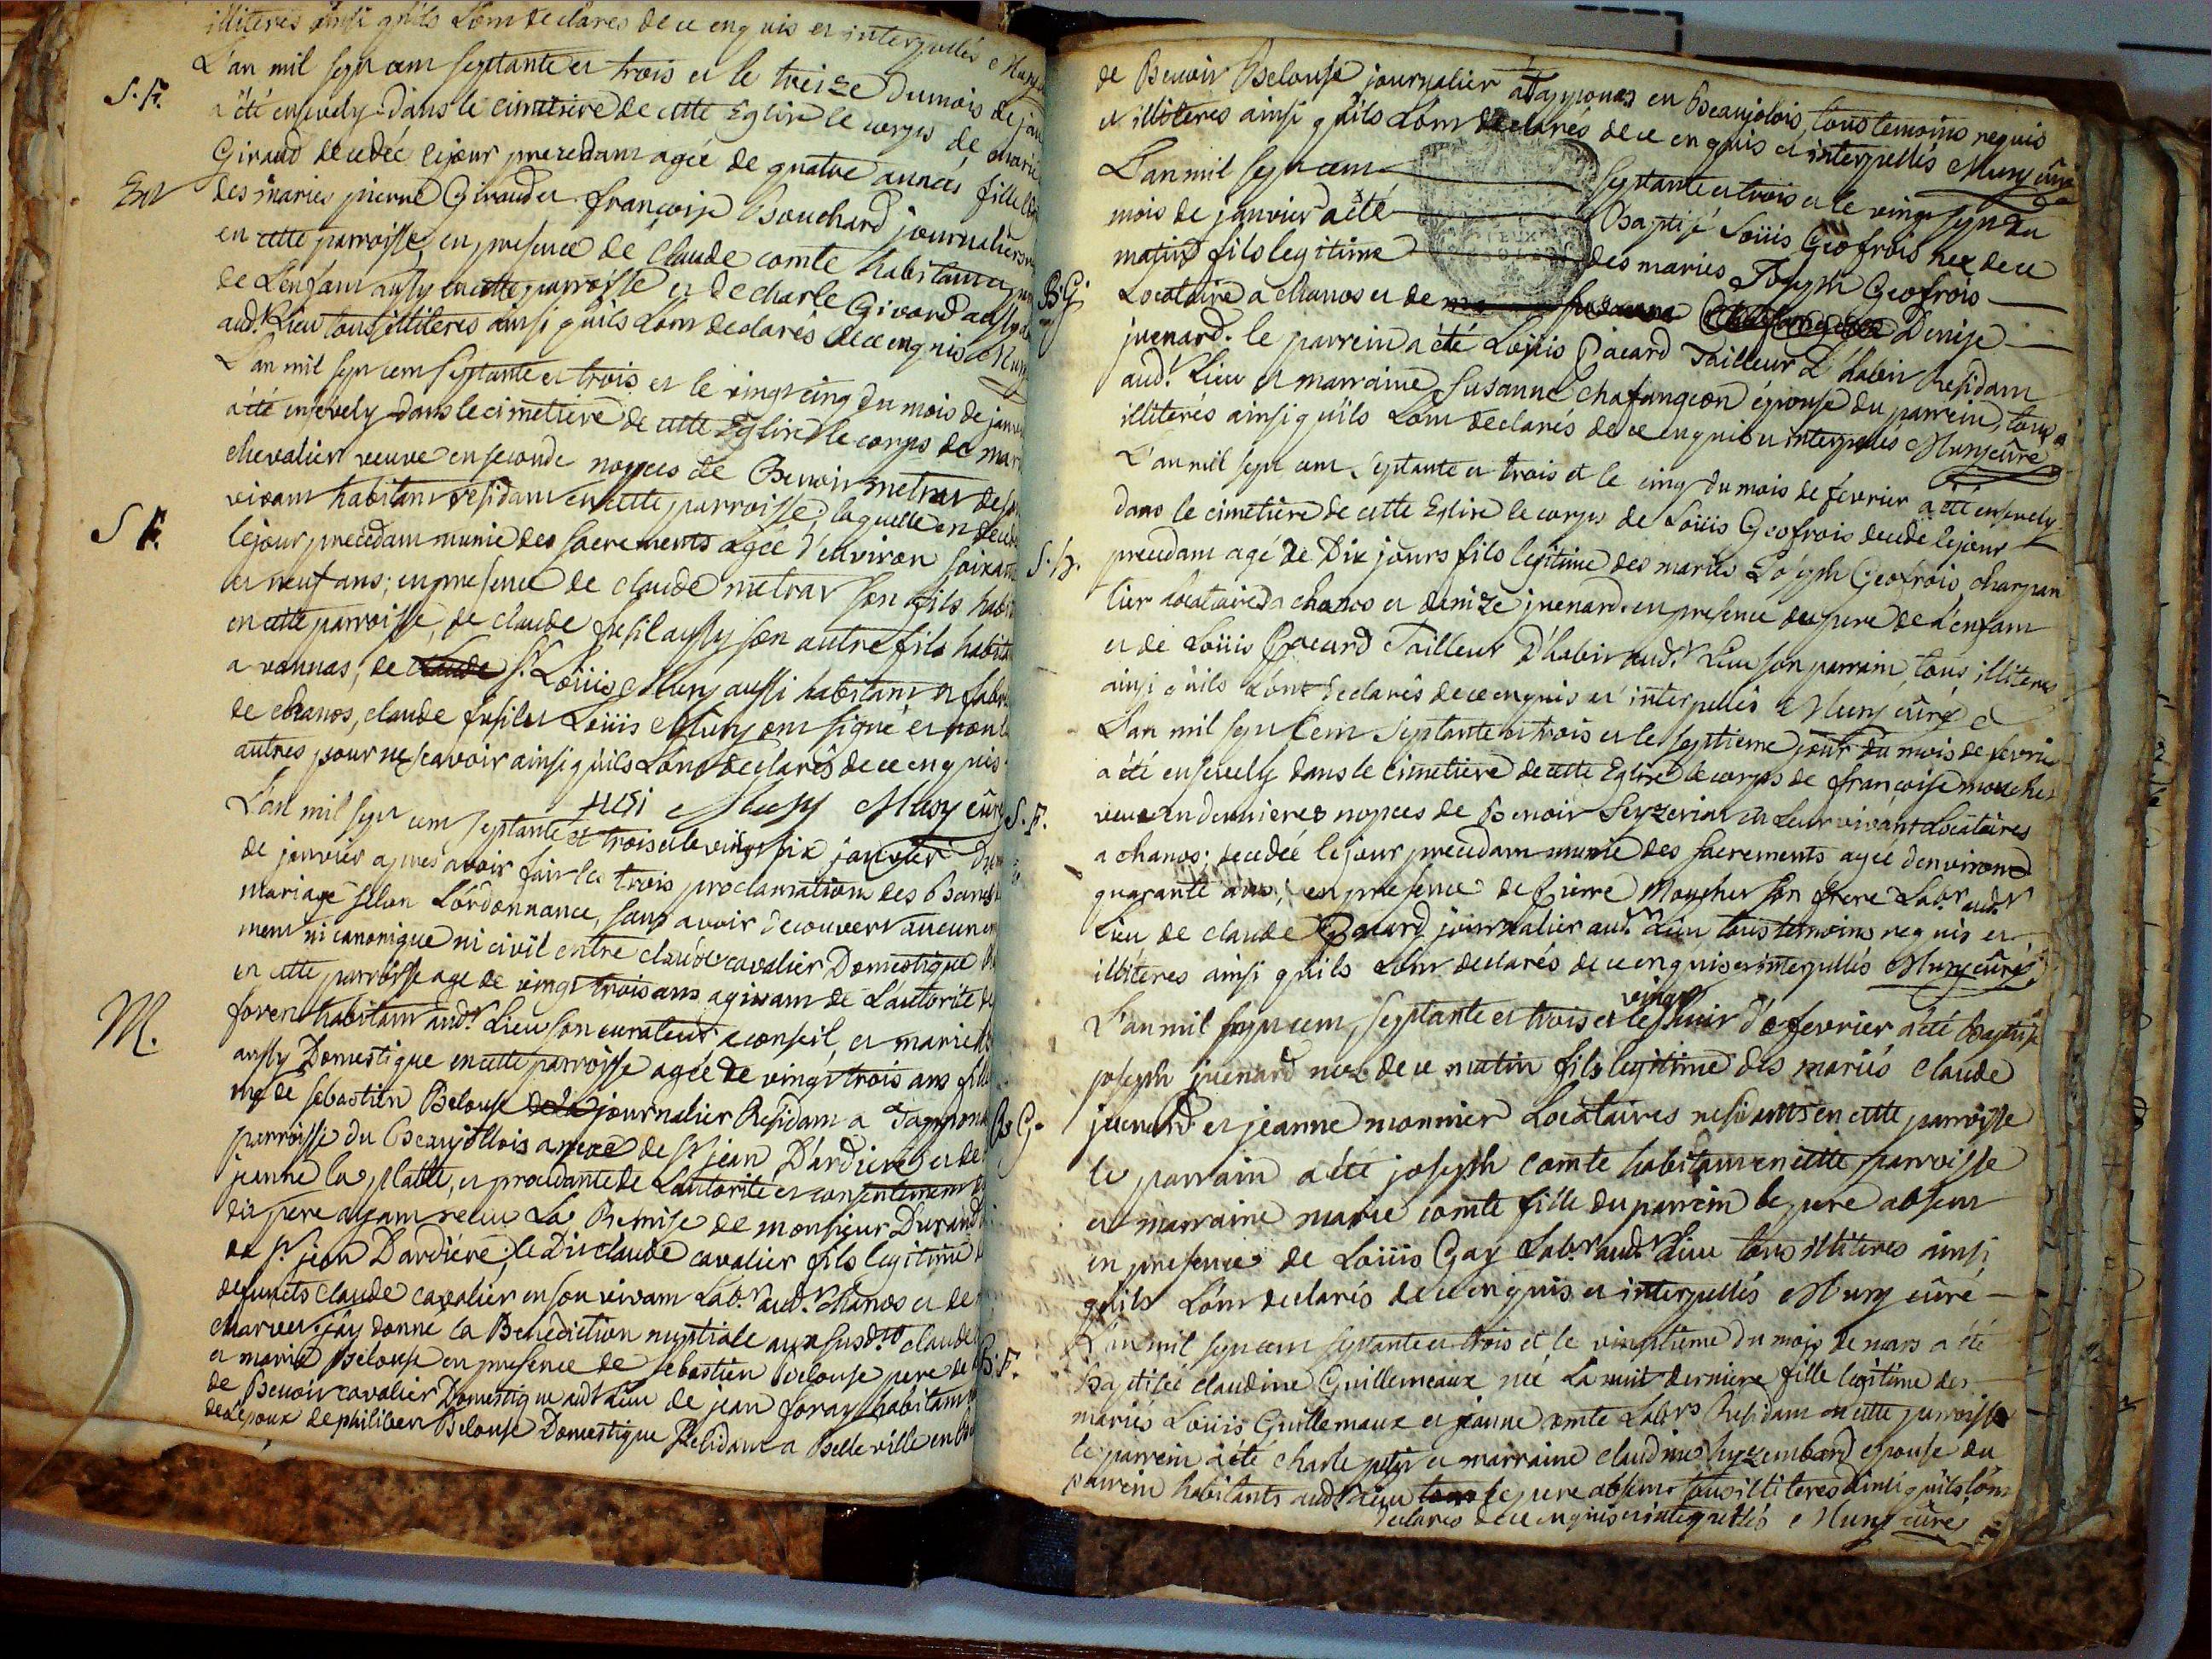 illiteres ainsi qu'ils L'ont declarés de ce enquis et interpellés Muzy
L'an mil sept cent septante et trois et le treize du mois de jan
S. F.
a été ensevely dans le cimetiere de cette Eglise le corps de marie
Giraud decedée le jour precedam agée de quatre années, fille
Enf
des mariés pierre Giraud et françoise Bouchard journaliers
en cette parroisse, en presence de Claude comte habitam
de L'enfam aussy en cette parroisse et de charle Givord aussy
aud.t Lieu tous illiteres ainsi qu'ils L'om declarés de ce enquis Muzy
L'an mil sept cem septante et trois et le vingt cinq du mois de janvi
a été ensevely dans le cimetiere de cette Eglise le corps de mari
chevalier veuve en seconde nopces de Benoit metrat de son
vivam habitam residam en cette parroisse, laquelle en decedé
S F.
le jour precedam munie des sacrements agée d'environ soixante
et neuf ans; en presence de claude metrat son fils habit
en cette parroisse, de claude fusil aussy son autre fils habita
a vonnas, de s.r Loüis Muzy aussi habitant et fabri
de chanos, claude fusil et Loüis Muzy om signé et non l
autres pour ne scavoir ainsi qu'ils L'om declarés de ce enquis
fusi Muzy Muzy curé
L'an mil sept cem septante et trois et le vingt six janvier du m
de janvier apres avoir fait les trois proclamations des Bans
mariage selon L'ordonnance, sans avoir decouvert aucun em
mem ni canonique ni civil entre claude cavalier Domestique
en cette parroisse agé de vingt trois ans agissam de L'autorité de
M.
foren habitam aud.t Lieu son curateur a conseil, et marie
aussy Domestique en cette parroisse agée de vingt trois ans fille
me de sebastien Belouse journalier Residam a Tappona
parroisse du Beaujollois annexe de S.t jean D'ardiere et de
jeanne la platte, et procedante de L'autorité et consentement d
dit pere ayam recu La Remise de monsieur Durand
de S.t jean D'ardiere; le Dit claude cavalier fils legitime d
defuncts claude cavalier en son vivam Lab.r aud.t chanos et de
charvet j'ay donné la Benediction nuptiale aux susd.ts claude
et marie Belouse en presence de sebastien Belouse pere de
de Benoit cavalier Domestique aud.t Lieu de jean foray habitam
de L'epoux de philibert Belouse Domestique Residam a Belleville en
de Benoit Belouse journalier a Tapponas en Beaujolois, tous temoins requis
et illiteres ainsi qu'ils L'om declarés de ce enquis et interpellés Muzy curé
L'an mil sept cem septante et trois et le vingt sept du
mois de janvier a été Baptisé Loüis Geofrois nez de ce
B. G.
matin fils legitime des mariés Joseph Geofrois
Locataire a chanos et de Denise
juenard. le parrein a été Loüis Pacard Tailleur D'habit Residam
aud.t Lieu et marraine Susanne chafangeon épouse du parrein, tous
illiterés ainsi qu'ils L'om declarés de ce enquis et interpellés Muzy curé
L'an mil sept cem septante et trois et le cinq du mois de fevrier a été ensevely
dans le cimetiere de cette Eglise le corps de Loüis Geofrois decedé le jour
S. G.
precedam agé de Dix jours fils legitime des mariés Joseph Geofrois charpan
tier Locataire a chanos et denize juenard en presence du pere de L'enfam
et de Loüis Pacard Tailleur D'habit aud.t Lieu son parrain, tous illiteres
ainsi qu'ils L'ont declarés de ce enquis et interpellés Muzy curé
L'an mil sept Cem Septante et trois et le septieme jour du mois de fevrie
a été ensevely dans le Cimetiere de cette Eglise le corps de françoise moucher
S. F.
veuve en dernieres nopces de Benoit Seyzeriat en Leur vivant Locataires
a chanos; decedée le jour precedam munie des sacrements agée d'environ
quarante ans; en presence de Pierre Moucher son frere Lab.r aud.t
Lieu de claude Pacard journalier aud.t Lieu, tous temoins requis et
illiteres ainsi qu'ils L'om declarés de ce enquis et interpellés Muzy curé
vingt
L'an mil sept cem septante et trois et le huit de fevrier a été Baptisé
joseph juenard nez de ce matin fils legitime des mariés Claude
B. G.
juenard et jeanne monnier Locataires residants en cette parroisse
le parrain a été joseph Comte habitam en cette parroisse
et marraine marie comte fille du parrein le pere absent
en presence de Loüis Gay Lab.r aud.t Lieu tous illiteres ainsi
qu'ils L'om declarés de ce enquis et interpellés Muzy curé
L'an mil sept cem septante et trois et le vingtieme du mois de mars a été
B. F.
Baptisée claudine Guillemeaux née La nuit derniere fille legitime des
mariés Loüis Guillemaux et jeanne comte Lab.rs Residam en cette parroisse
le parrein a été charle petit et marraine claudine seyzembard epouse du
parrein habitants aud.t Lieu le pere absent tous illiteres ainsi qu'ils L'om
declarés de ce enquis et interpellés Muzy curé